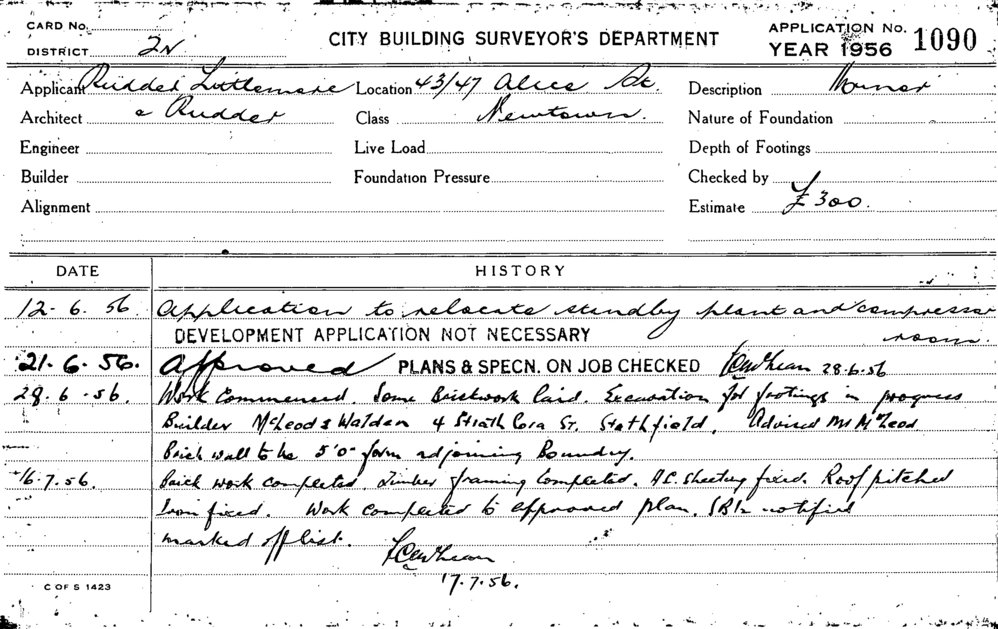 CARD No.
DISTRICT 2N
CITY BUILDING SURVEYOR'S DEPARTMENT
APPLICATION No. 1090
YEAR 1956
Applicant Rudder Littlemore Location 43/47 Alice St. Description Minor
Architect & Rudder Class Newtown. Nature of Foundation
Engineer Live Load Depth of Footings
Builder Foundation Pressure Checked by
Alignment Estimate £300.
DATE HISTORY
12. 6. 56 Application to relocate standby plant and compressor
room.
DEVELOPMENT APPLICATION NOT NECESSARY
21. 6. 56. Approved PLANS & SPECN. ON JOB CHECKED 28.6.56
28. 6. 56. Work Commenced. Some Brickwork laid. Excavation for footings in progress
Builder McLeod & Walden 4 Strath Cora St. Stathfield. Advised Mr McLeod
Brick wall to be 5'0" form adjoining Boundry.
16.7.56. Brick work completed. Timber framing Completed. A.C. Sheeting fixed. Roof pitched
Iron fixed. Work completed to approved plan. notified
marked off list.
17.7.56.
C OF S 1423